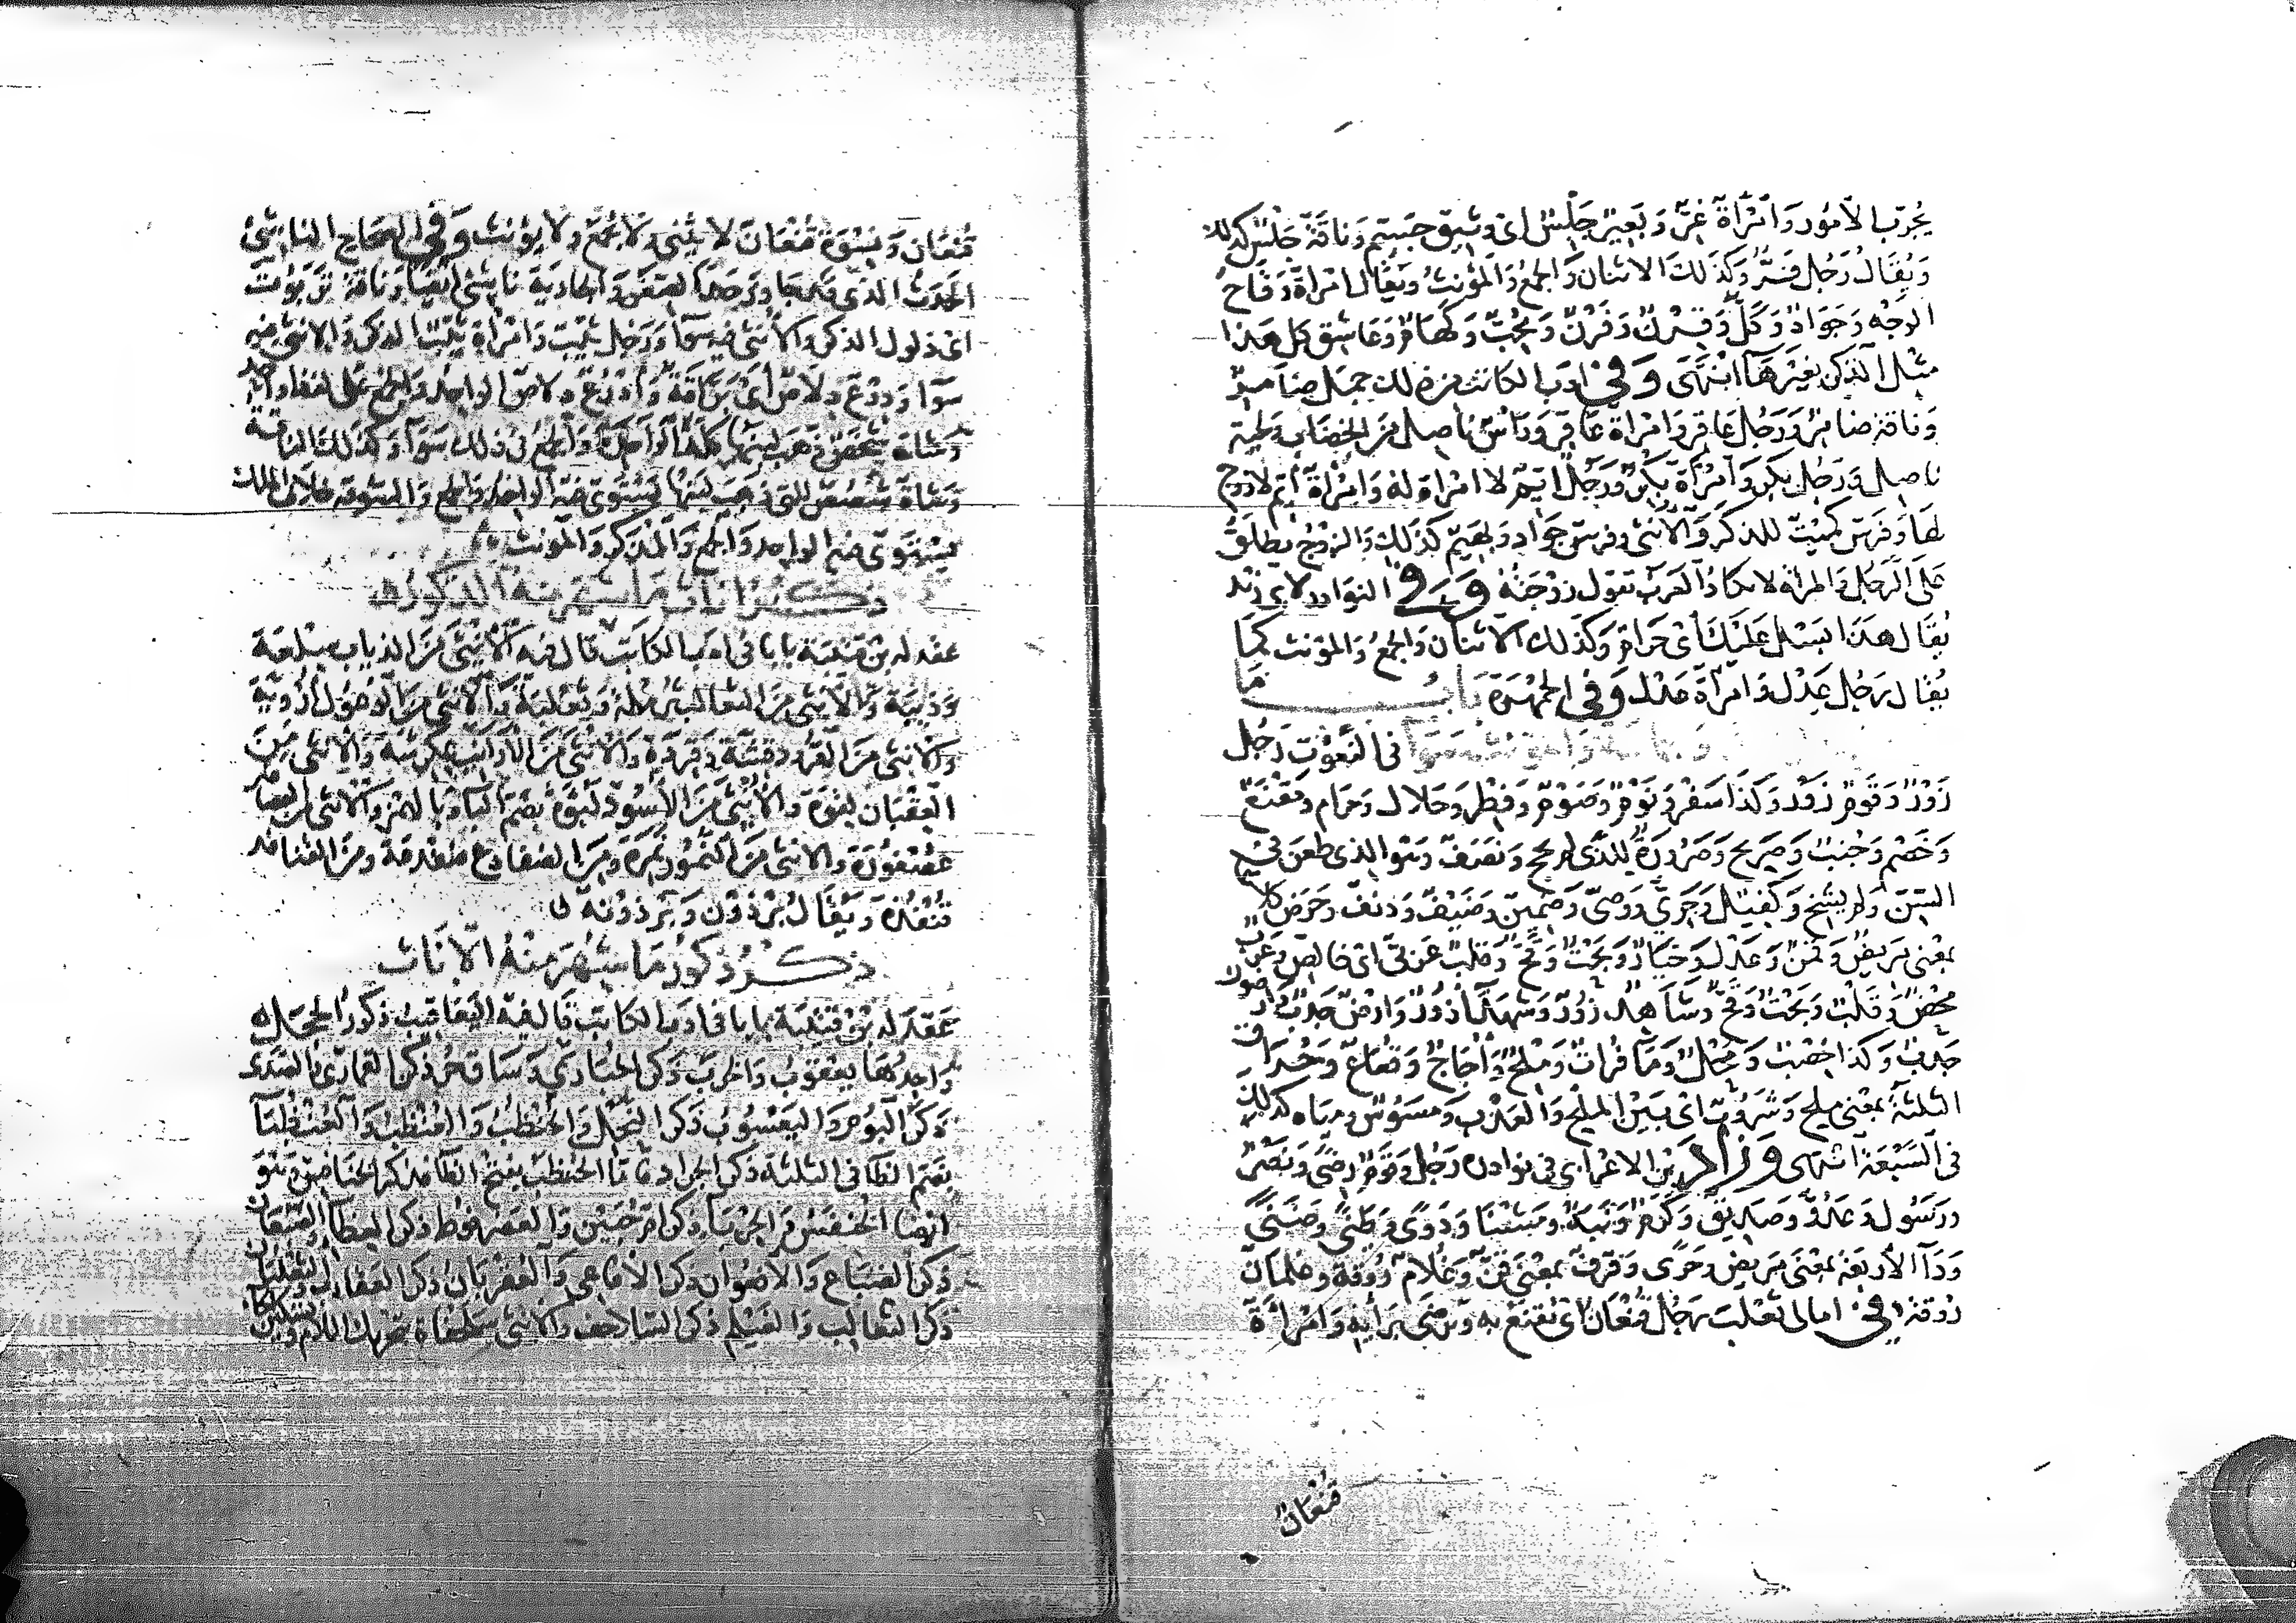 يُجرّب الأمُور وَامْرَأة غِرّ وَبَعِير جَلْس اى وثيق جسيم وَناقَة جَلْس كذلك
وَيُقَالُ رَجُل فَرٌّ وكَذَلكَ الاثنان وَالجمعُ وَالمؤنثُ ويُقال امْرأة وَقَاحُ
الوَجْه وَجَوَادٌ وَكَلٌّ وَقِرْنٌ وَقَرْنٌ وَمُحِبٌّ وكَهَامٌ وَعَاشِق كل هَذا
مثل الذكر بغَيْر هَاء انتهَى وَفى ادَب الكاتب من ذلك جمَل ضامِرٌ
وَناقة ضامرٌ وَرَجُل عَاقِر وَامْرَاة عَاقِر وَرَأسٌ ناصِل من الخضاب ولحية
ناصِل وَرَجُل بِكر وَامْرَأة بِكرٌ وَرَجُل أيّم لا امْرَاة له وَامْرأة أيّم لا زوج
لهَا وَفَرَس كُميْتٌ للذكَر وَالأُنثى وفرس جَوَاد وَبَهيم كَذلِكَ والزوْج يطلَقُ
عَلى الرّجُل والمرأة لا تكادُ العرَب تقول زوْجَته وَفى النوَادر لابى زيْد
يُقَال هَذَا بَسْل عَلَيْكَ أىْ حَرام وَكَذلك الاثنان وَالجمْعُ وَالمؤنث كمَا
يُقال رَجُل عَدْل وَامرَأة عَدْل وَفى الجمْهَرَة بَابُ مَا
فى النّعُوْت رَجُل
زَوْرٌ وَقَومٌ زَوْر وَكَذا سَفْر وَنَوْمٌ وَصَوْمٌ وَفِطْر وَحَلال وَحَرام ومَقْنَعٌ
وَخَصْم وَجُنبٌ وَصَرِيح وَصَرُورَةٌ للذى لم يحج وَنَصَفٌ وهو الذى طعَن فى
السّن ولم يشِخ وَكَفيْل وَجَرِيّ وَوَصِىّ وَضمين وضَيْفٌ وَدنفٌ وحَرض كلا
بمعْنى مَريض وَقَمنٌ وَعَدْل وَخيَارٌ وَعَربىّ
محْضٌ وَقَلْبٌ وَبَحْتٌ وَقحٌّ وشَاهد زُوْرٌ وشُهدَاء زُوْرٌ وَارضٌ جَدْبٌ وَارضون
جَدْب وَكَذا خِصْبٌ وَمَحْلٌ وَمَاء فُراتٌ وَمِلْحٌ وَأُجَاجٌ وَقعَاعٌ وَحُراق
الثلاثة بمعْنى ملح وَشَرُوْبٌ اىْ بيَن الملح وَالعذْب وَمسُوْسٌ ومياه كذلك
فى السَّبْعَة انتهى وَزادَ بْن الاعْرابى فى نوادره رَجُل وَقومٌ رِضًى وَنَصْرٌ
وَرَسُول وَعَدُوّ وَصَديْق وَكَرَمٌ
وَدَاء الأربَعَة بمعْنى مَريض وَحَرًى وَقَرفٌ بمعْنى قمنٌ وَغُلامٌ رُوقَة وَغلمان
رُوْقة وَفى امالى ثعْلب رَجُل قُنْعَانٌ أىْ يُقنَعُ به ويُرْضى بَرأيِه وَامْرَأة
قُنْعَانٌ
قُنْعَان وَنِسْوَة قُنْعَانٌ لا يُثنى وَلا يُجْمَعُ وَلا يؤنث وَفى الصحَاح الناشئ
الحدَث الذى قد جاوز حَدّ الصغر وَالجاريَة ناشئ ايْضًا وَناقة تَرَبُوت
اىْ ذلول الذكر وَالأُنثى فيه سَوَاء وَرَجُل ثيّب وَامْرأة ثيّب الذكر وَالانثى فيه
سَوَاء وَدِرْعٌ دِلَاصٌ أىْ بَرَّاقَة وَأَدْرُعٌ دِلاصٌ الواحِد وَالجمْع عَلى لفظ وَاحد
وَشاة شَحَصٌ ذهب لبنهَا كلّه الوَاحِدَة وَالجمْعُ فى ذلك سَوَاء وَكَذلكَ الناقة
وَشاة شَصُصٌ للتى ذهَبَ لبَنُها يَسْتَوى فيْه الوَاحِد وَالجمع وَالسُّوقة خلَاف الملك
يَسْتَوى فيه الوَاحد وَالجمْع وَالمذَكر وَالمؤنث
ذكر اناث ما شهر منه الذكور
عقد له بن قتيبَة بابا فى ادَب الكاتب قال فيه الأُنثى مَن الذياب سِلْقَة
وَذِيبَة وَالأنثى مَن الثعالب ثُرْمُلة وَثَعْلبَة وَالانثى من الوُعُول أُرْويّة
وَالانثى مَن القرُود قِشَّة وَقِرْدَة وَالأنثى مَن الأَرانب عِكْرِشَة وَالانثى مِنَ
العِقْبَان لِقوَة وَالأُنثى مَن الأسُود لَبُؤَة بضَمّ البَاء وَبالهمز وَالانثى من العصافير
عُصْفُوْرَة وَالانثى مَن النُّمُور نَمِرَة وَمِن الضفادع ضفدعَة ومَن القنافد
قُنْفُذَة وَيُقَالُ بِرْذَوْن وَبِرْذَوْنة
ذكْرُ ذكُور مَا شُهِرَ مِنْهُ الاناث
عَقَدَ لهُ بْنُ قتيْبَة بابا فى ادَب الكاتب قال فيْه اليَعاقيْبُ ذكورُ الحَجَل
وَاحِدُهَا يَعْقوبُ وَالخرَب ذكر الحُبَارَى وَسَاق حُرّ ذكر القمَارى وَالصَّدَى
ذكر البُوْم وَاليَعْسُوبُ ذكر النّحْل وَالحُنْظُبُ وَالعُنْظُبُ وَالعُنْظُبَاء
بضم الظا فى الثلاثة ذكر الجرَاد فَامّا الحُنظَبُ بفتْح الظا فذكر الخنَافِس وَهو
ايْضا الخُنفَسُ وَالحِرْبَاء ذكر امّ حُبَيْن وَالعَضرفوط ذكر العظاء وَالضّبْعَان
ذكر الضبَاع وَالأفعُوان ذكر الأفاعى وَالعُقرُبانُ ذكر العقارب وَالثعْلبَان
ذكر الثعالب وَالغَيْلم ذكر السلاحف وَالأنثى سُلَحْفاة بتحريك اللام وتسكين